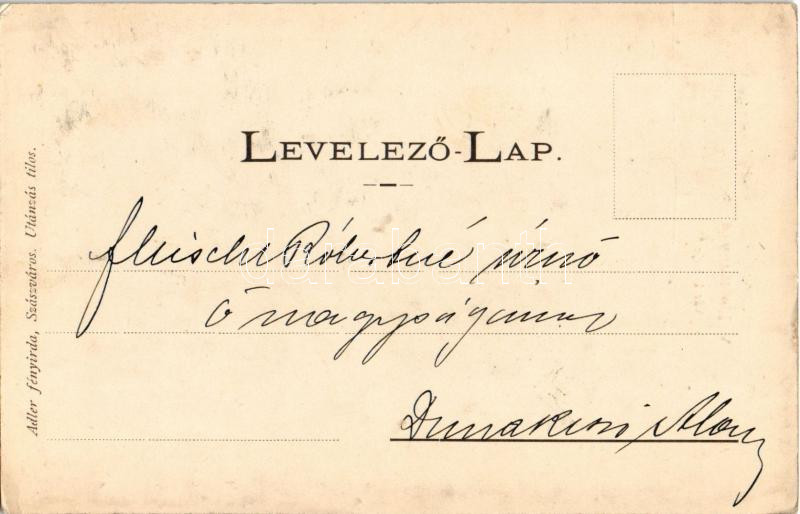 LEVELEZŐ-LAP.
Róbertné úrnő
ő nagyságának
Dunakeszi Alag
Adler fényirda, Szászváros. Utánzás tilos.
darabanth